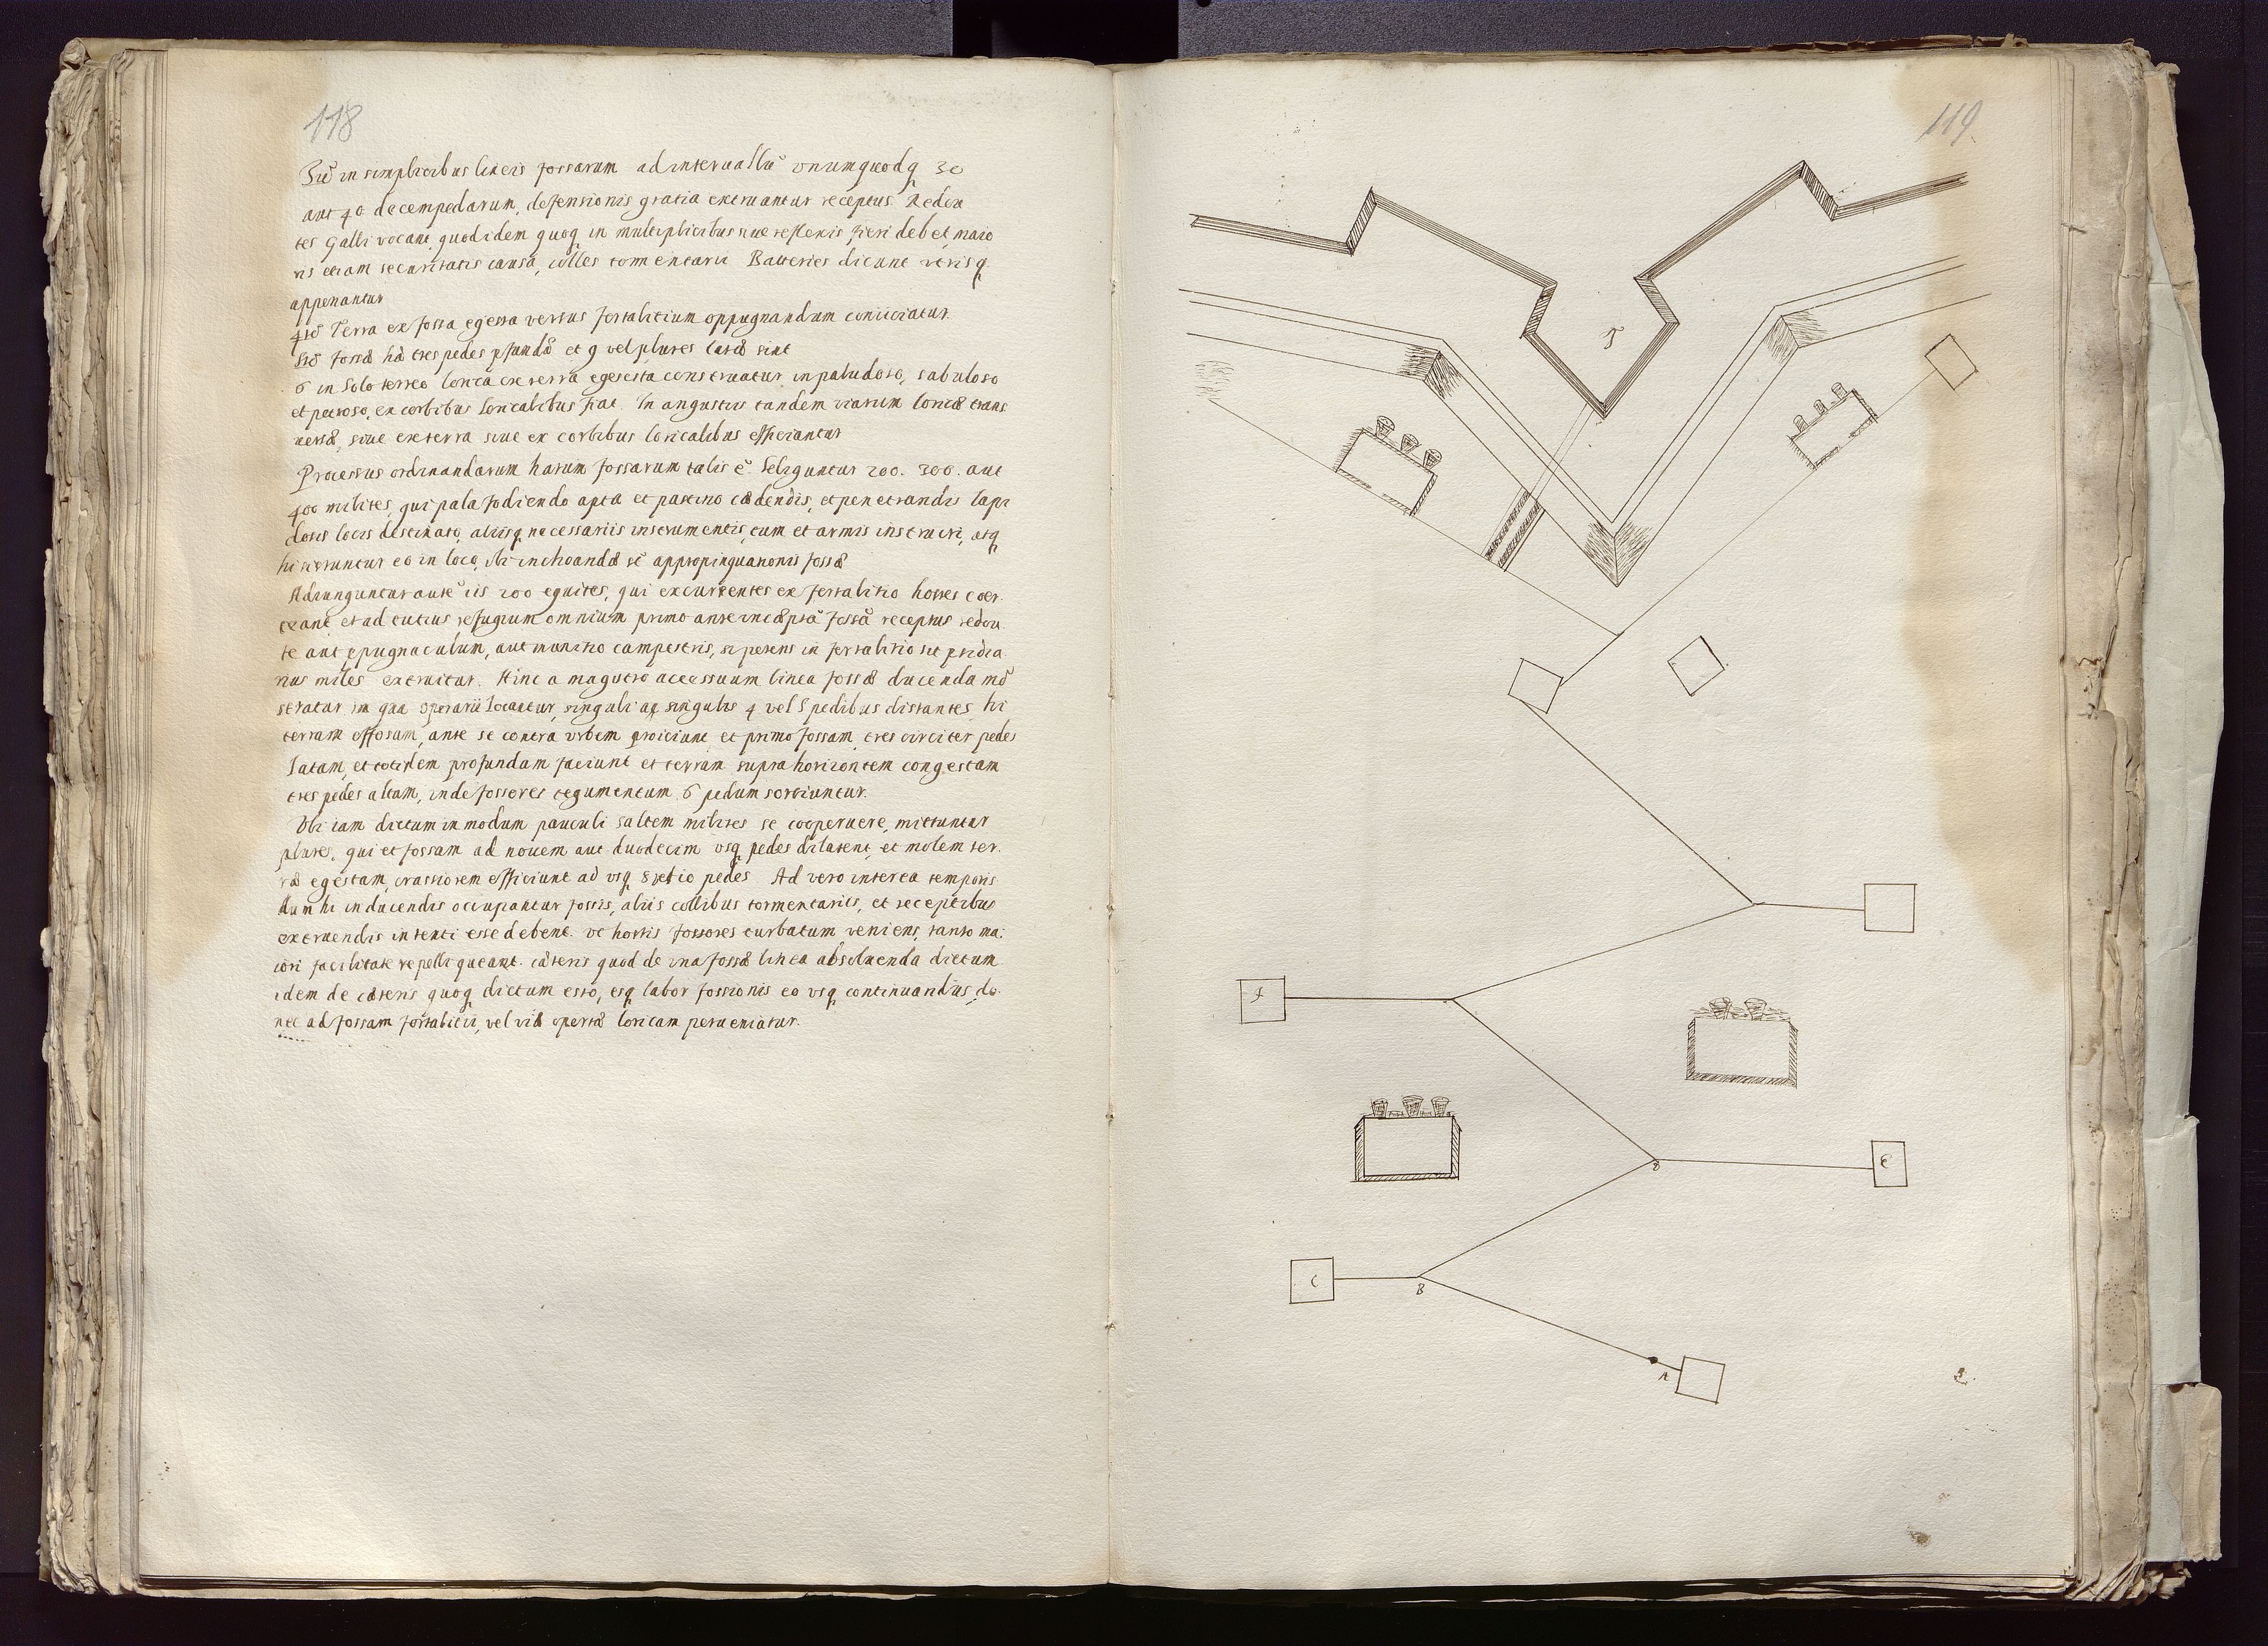 118
3iũ in simplicibus lineis fossarum ad interuallũ vnumquodq 30
aut 40 decempedarum, defensionis gratia extruantur receptus Redou
tes Galli vocant, quod idem quoq in multiplicibus siue reflexis fieri debet, maio
ris etiam securitatis causa, colles tormentarii Batteries dicunt vtrisq
apponantur
4tõ Terra ex fossa egesta versus fortalitium oppugnandum coniiciatur.
5tõ Fossæ hæ tres pedes pfundæ et 9 vel plures latæ sint
6 in Solo terreo lorica ex terra egesta construatur in paludoso, sabuloso
et petroso, ex corbibus loricalibus fiat. In angustiis tandem viarum loricæ trans
uersæ, siue ex terra siue ex corbibus loricalibus efficiantur
Processus ordinandarum harum fossarum talis ẽ. Seliguntur 200. 300. aut
400 milites, qui pala fodiendo apta et pastino cædendis, et penetrandis lapi
dosis locis destinato, aliisq necessariis instrumentis, tum et armis instructi, atq
hi in eo loco, vbi inchoandæ st appropinquationis fossæ
Adiunguntur autẽ iis 200 equites, qui excurrentes ex fortalitio hostes coer
ceant et ad tutius refugium omnium primo ante incæptã fossã receptus redou
te aut ppugnaculum, aut munitio campestris, si potens in fortalitio sit psidia
rius miles extruitur. Hinc a magistro accessuum linea fossæ ducenda mõ
stratur in qua operarii locantur, singuli a singulis 4 vel 5 pedibus distantes, hi
terram effosam, ante se contra vrbem proiiciunt et primo fossam tres circiter pedes
latam, et totidem profundam faciunt et terram supra horizontem congestam
tres pedes altam, inde fossores tegumentum 6 pedum sortiuntur.
Vbi iam dictum in modum pauculi saltem milites se cooperuere, mittuntur
plures, qui et fossam ad nouem aut duodecim vsq pedes dilatent, et molem ter
ræ egestam, crassiorem efficiunt ad vsq 8 vel 10 pedes. Ad vero interea temporis
dum hi in ducendis occupantur fossis, aliis collibus tormentariis, et receptibus
extruendis intenti esse debent. vt hostis fossores turbatum veniens, tanto ma:
iori facilitate repelli queant. cæteris quod de vna fossæ linea absoluenda dictum
idem de cæteris quoq dictum esto, estq labor fossionis eo vsq continuandus, do
nec ad fossam fortalitii, vel viæ opertæ loricam perueniatur.
119
F
D
E
C
B
A